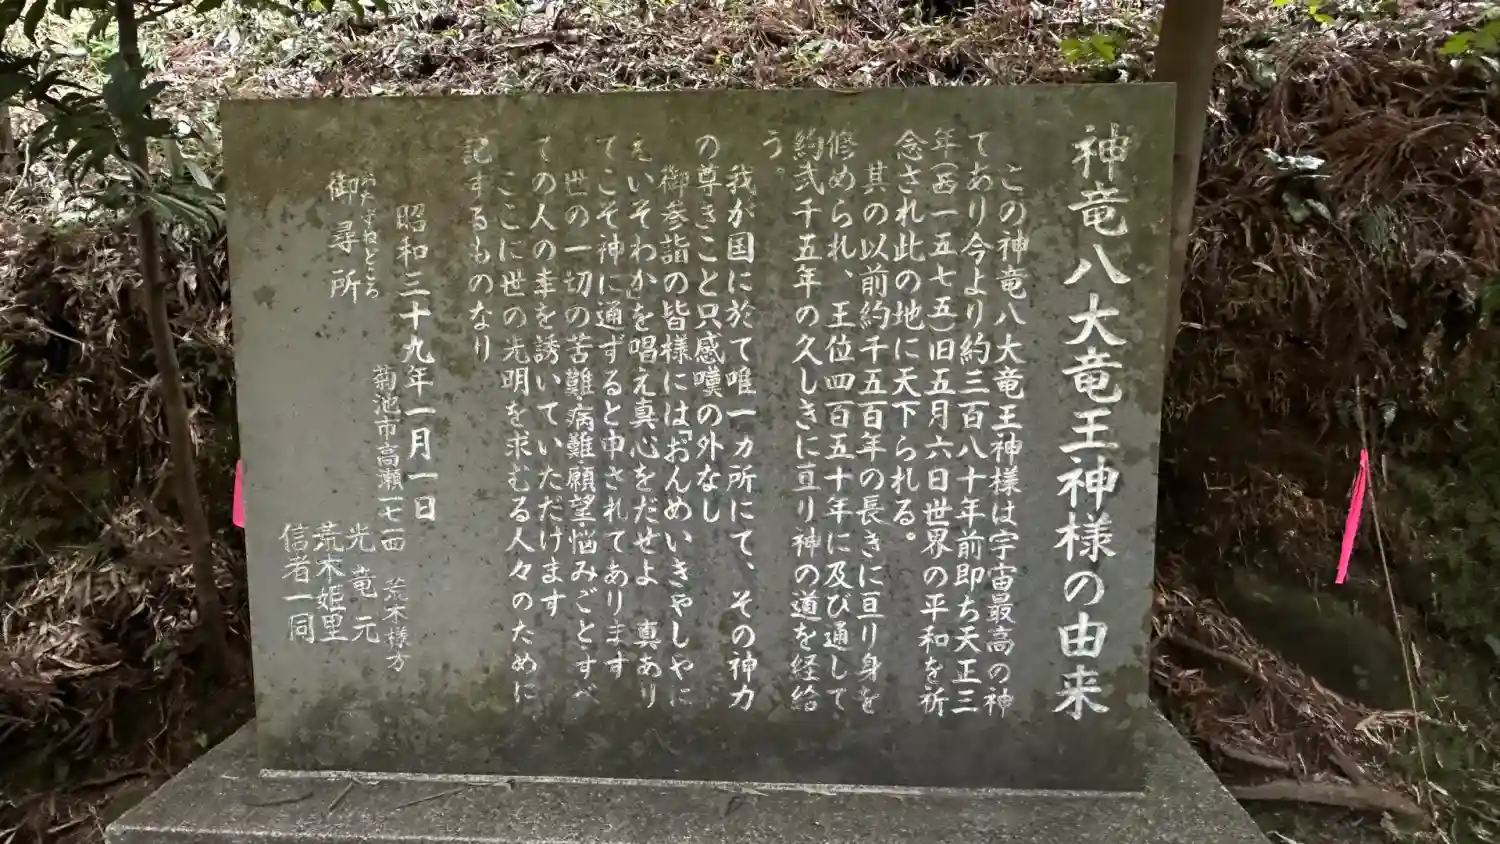 神竜八大竜王神様の由来
この神竜八大竜王神様は宇宙最高の神
てあり今より約三百八十年前即ち天正三
年(西一五七五)旧五月六日世界の平和を祈
念され此の地に天下られる。
其の以前約千五百年の長きに亘り身を
修められ、王位四百五十年に及び通して
約弐千五年の久しきに亘り神の道を経給
う。
我が国に於て唯一カ所にて、その神力
の尊きこと只感嘆の外なし
御参詣の皆様には「おんめいきゃしゃに
えいそわか」を唱え真心をだせよ 真あり
てこそ神に通ずると申されてあります
世の一切の苦難病難願望悩みごとすべ
ての人の幸を誘いていただけます
ここに世の光明を求むる人々のために
記するものなり
昭和三十九年一月一日
おたずねどころ
御尋所
菊池市高瀬一七一四 荒木様方
光竜元
荒木姫里
信者一同